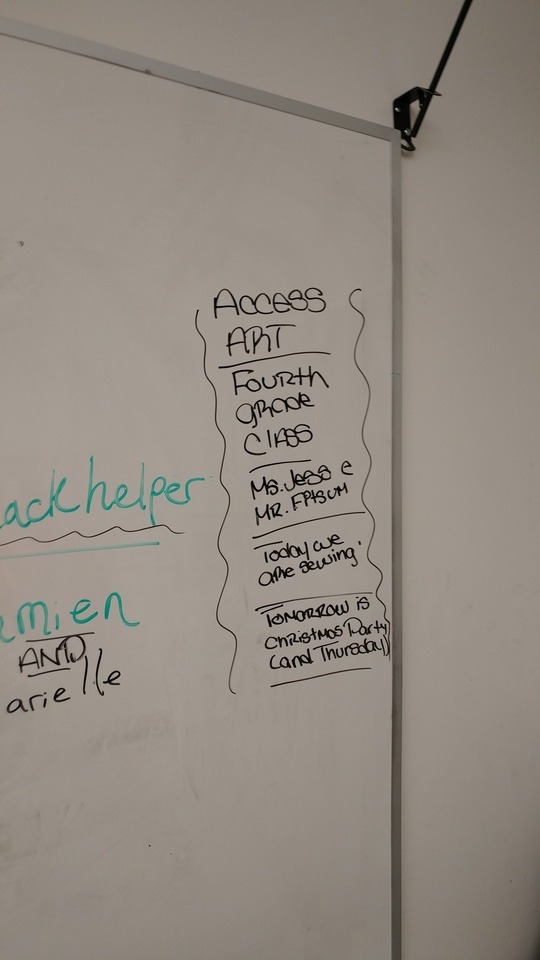 ACCESS
ART
Fourth
grade
Class
Ms. Jess &
MR.
Today we
are sewing.
Tomorrow is
Christmas Party
(and Thursday)
ackhelper
mien
AND
arielle